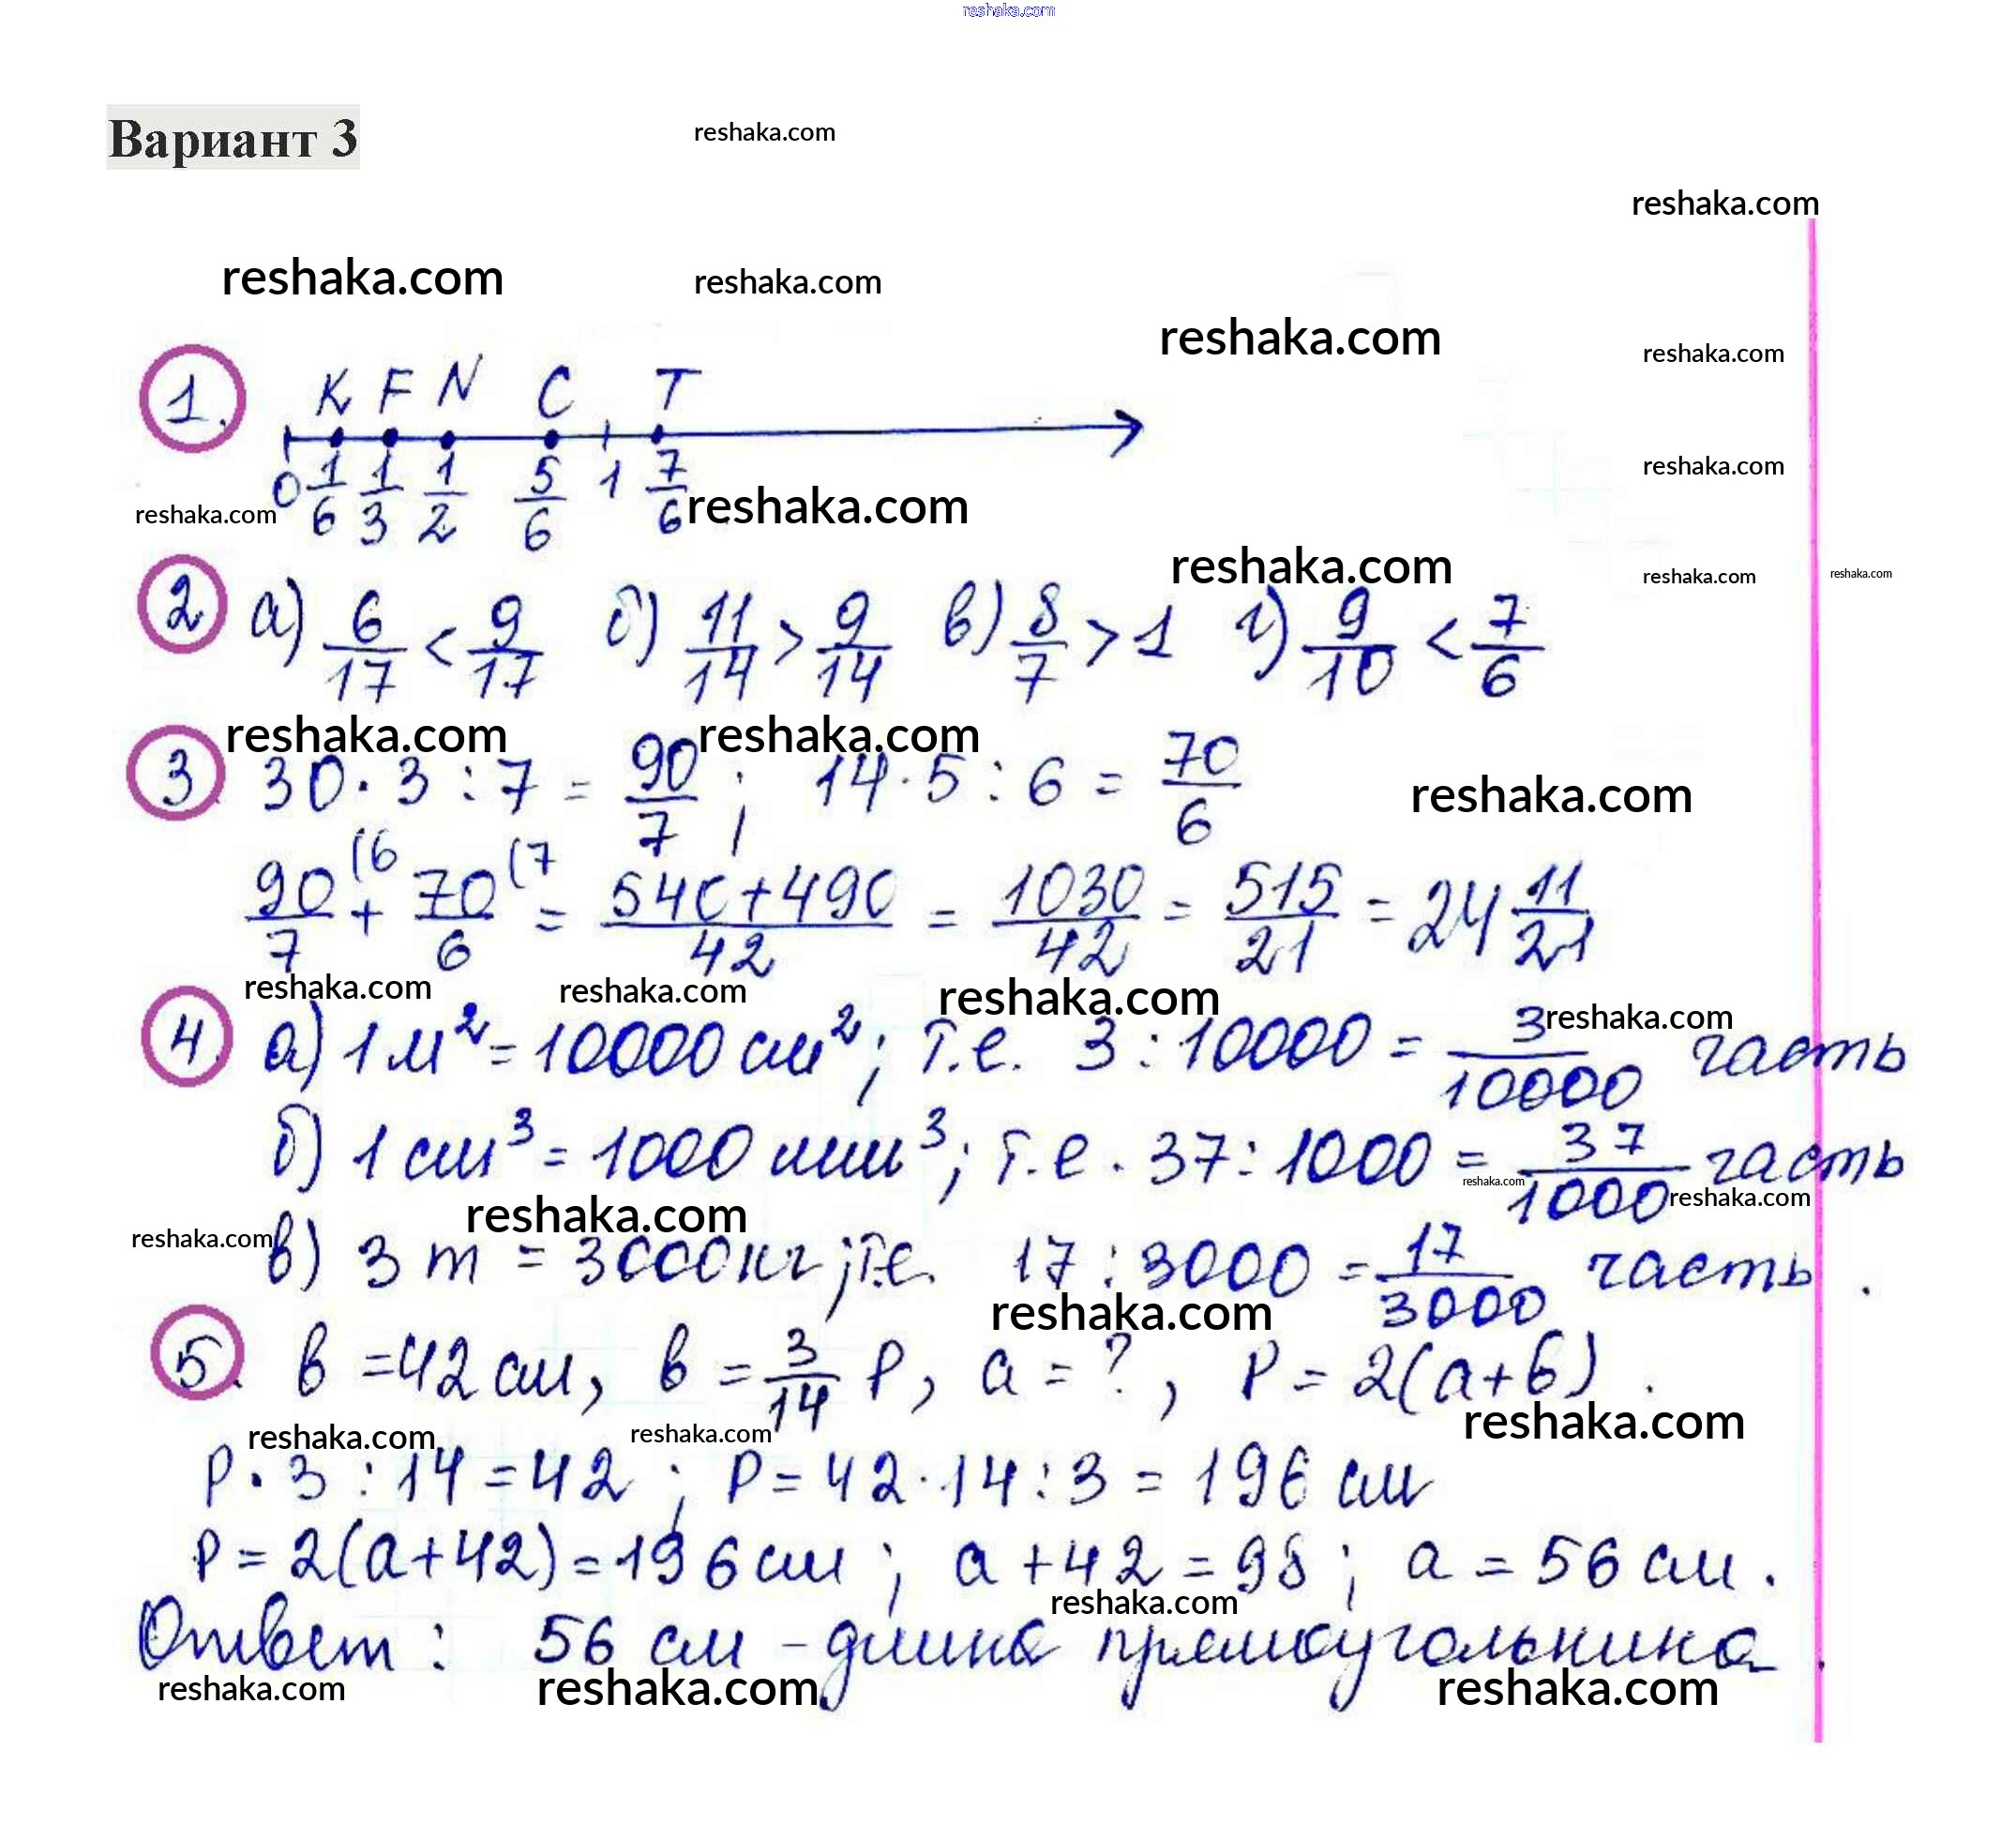 reshaka.com
Вариант 3 reshaka.com
reshaka.com
reshaka.com reshaka.com
reshaka.com reshaka.com
1. K F N C T
0 1/6 1/3 1/2 5/6 1 7/6
reshaka.com reshaka.com reshaka.com
reshaka.com reshaka.com reshaka.com
2 а) 6/17 < 9/17 б) 11/14 > 9/14 в) 8/7 > 1 г) 9/10 < 7/6
reshaka.com reshaka.com
3. 30 · 3 : 7 = 90/7 ; 14 · 5 : 6 = 70/6
reshaka.com
90/7 (6 + 70/6 (7 = 540+490/42 = 1030/42 = 515/21 = 24 11/21
reshaka.com reshaka.com reshaka.com reshaka.com
4. а) 1 м² = 10000 см² ; т.е. 3 : 10000 = 3/10000 часть
б) 1 см³ = 1000 мм³ ; т.е. 37 : 1000 = 37/1000 часть
reshaka.com reshaka.com
reshaka.com reshaka.com
в) 3 т = 3000 кг ; т.е. 17 : 3000 = 17/3000 часть .
reshaka.com
5. в = 42 см, в = 3/14 Р, а = ? , Р = 2(а+в) .
reshaka.com reshaka.com reshaka.com
Р · 3 : 14 = 42 ; Р = 42 · 14 : 3 = 196 см
Р = 2(а+42) = 196 см ; а + 42 = 98 ; а = 56 см .
reshaka.com
Ответ : 56 см – длина прямоугольника .
reshaka.com reshaka.com reshaka.com